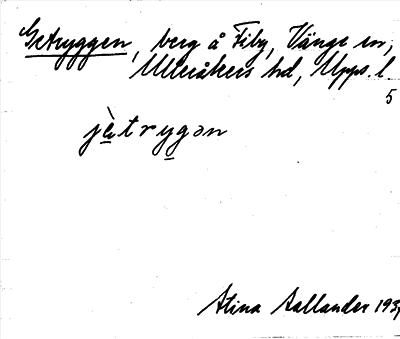 Getryggen, berg å Fiby, Vänge sn,
Ulleråkers hd, Upps. l.
5
jètrygən
Stina Sallander 193